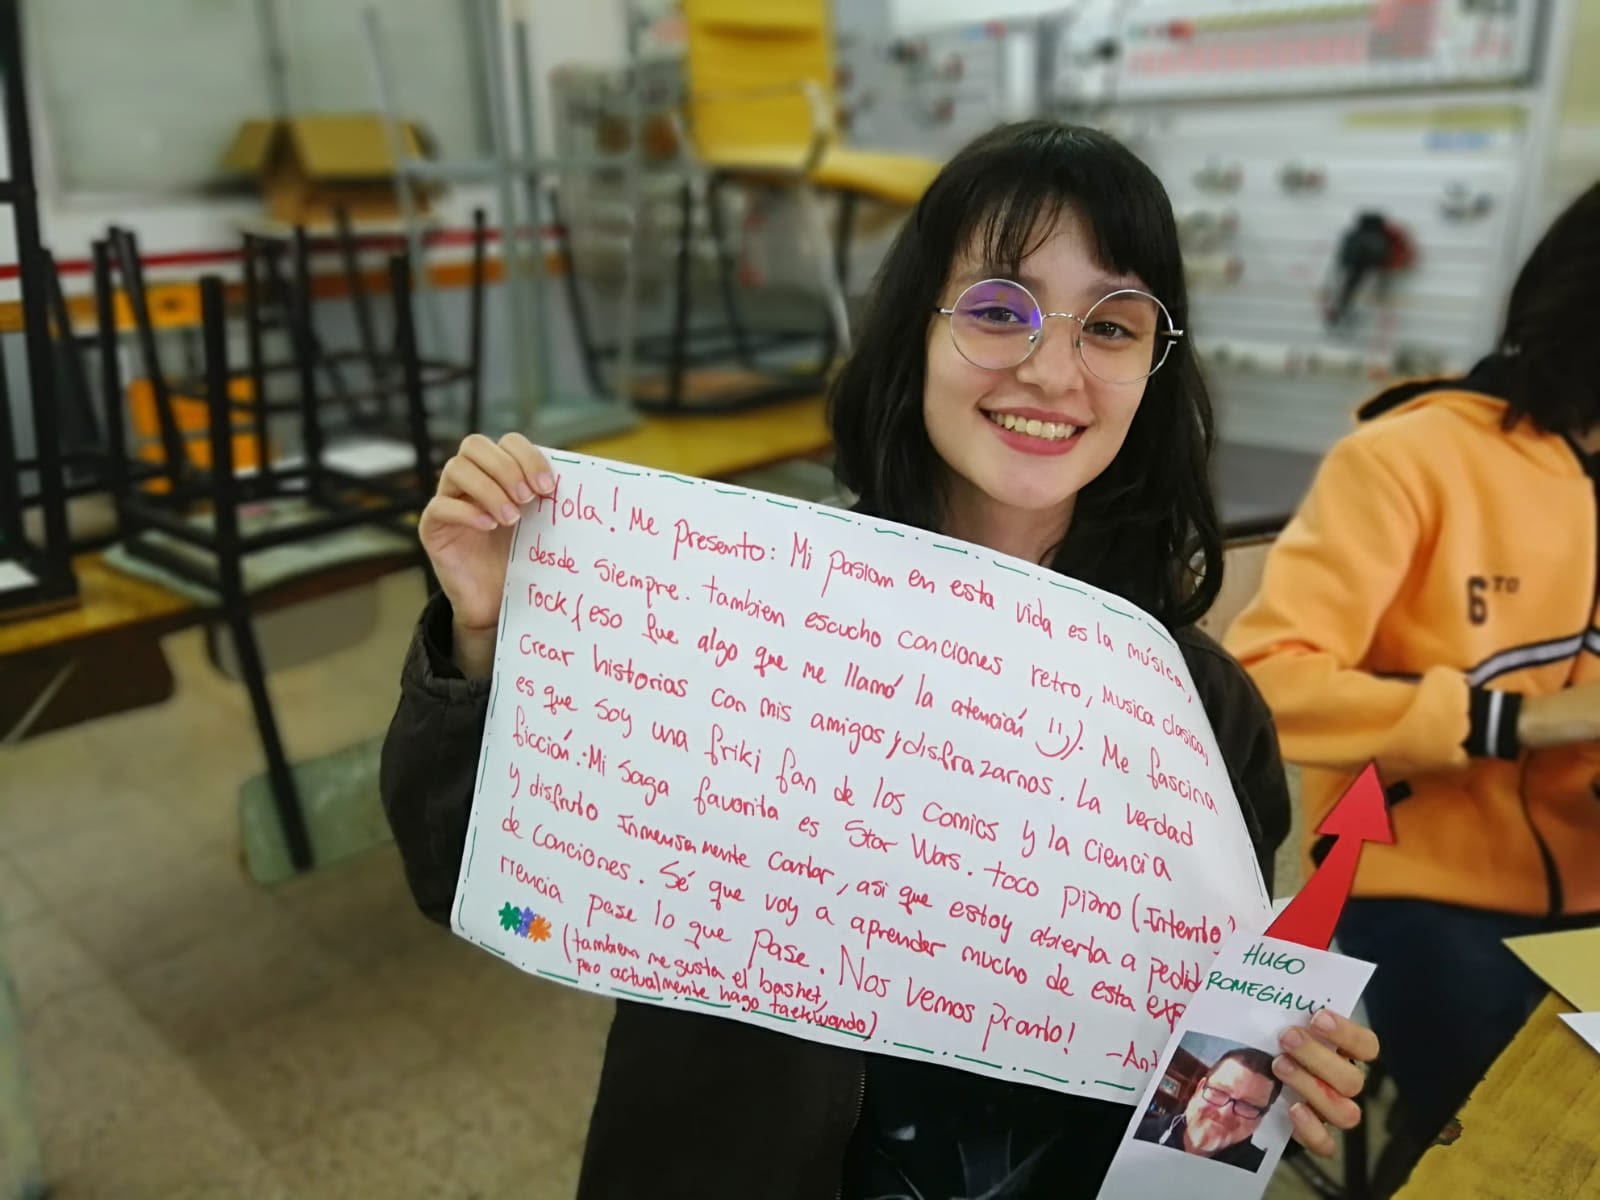 Hola! Me presento: Mi pasion en esta vida es la música,
desde siempre. tambien escucho canciones retro, musica clasica,
rock, (eso fue algo que me llamó la atención :)). Me fascina
crear historias con mis amigos y disfrazarnos. La verdad
es que soy una friki fan de los comics y la ciencia
ficción. Mi saga favorita es Star Wars. toco piano (Intento)
y disfruto Inmensamente cantar, asi que estoy abierta a pedid
de canciones. Sé que voy a aprender mucho de esta exp
riencia pase lo que pase. Nos vemos pronto!
(tambien me gusta el basket,
pero actualmente hago taekwando)
-Ant
HUGO
ROMEGIALLI
6TO